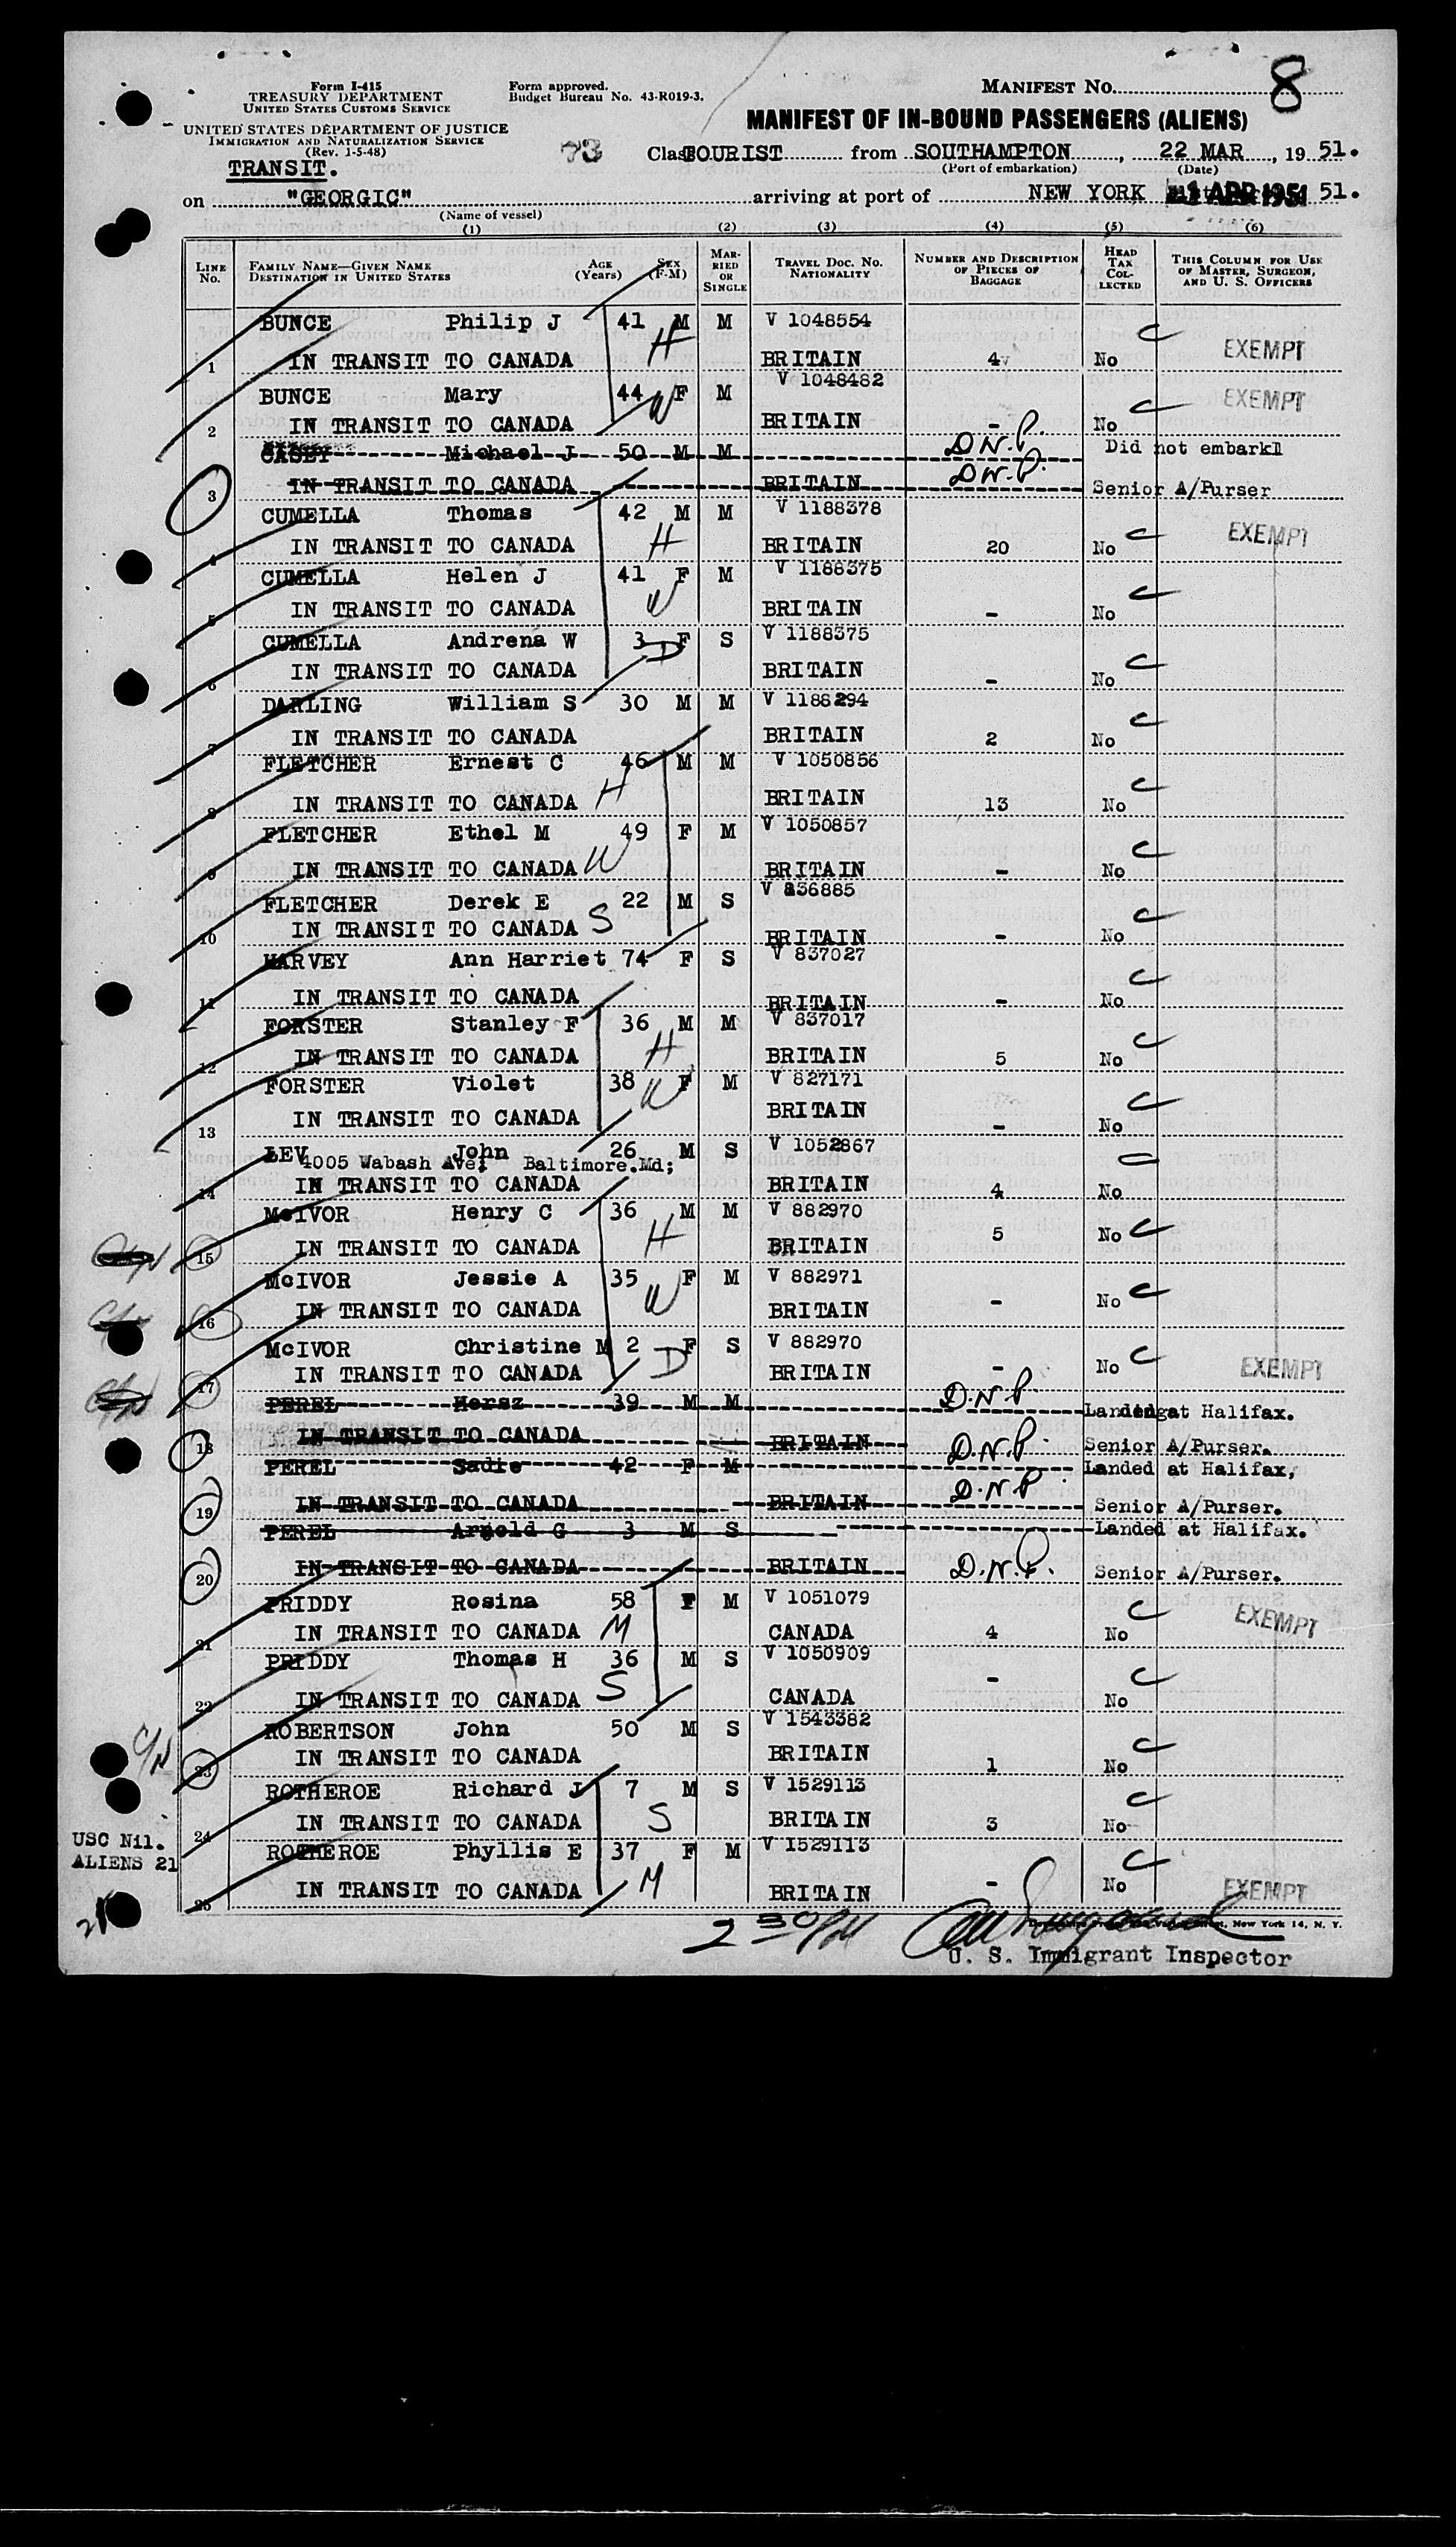 8
Form I-415
TREASURY DEPARTMENT
UNITED STATES CUSTOMS SERVICE
Form approved.
Budget Bureau No. 43-R019-3.
MANIFEST No.
UNITED STATES DEPARTMENT OF JUSTICE
IMMIGRATION AND NATURALIZATION SERVICE
(Rev. 1-5-48)
MANIFEST OF IN-BOUND PASSENGERS (ALIENS)
TRANSIT.
73 Class TOURIST from SOUTHAMPTON, 22 MAR, 19 51.
(Port of embarkation) (Date)
on "GEORGIC" arriving at port of NEW YORK 1 APR 1951 51.
(Name of vessel)
(1) (2) (3) (4) (5) (6)
LINE No. FAMILY NAME—GIVEN NAME DESTINATION IN UNITED STATES AGE (Years) SEX (F-M) MARRIED OR SINGLE TRAVEL DOC. NO. NATIONALITY NUMBER AND DESCRIPTION OF PIECES OF BAGGAGE HEAD TAX COLLECTED THIS COLUMN FOR USE OF MASTER, SURGEON, AND U. S. OFFICERS
BUNCE Philip J 41 M M V 1048554
1 IN TRANSIT TO CANADA H BRITAIN 4 No C EXEMPT
BUNCE Mary 44 F M V 1048482
2 IN TRANSIT TO CANADA W BRITAIN - No C EXEMPT
CASEY Michael J 50 M M D.N.P. Did not embark
3 IN TRANSIT TO CANADA BRITAIN D.N.P. Senior A/Purser
CUMELLA Thomas 42 M M V 1188378
4 IN TRANSIT TO CANADA H BRITAIN 20 No C EXEMPT
CUMELLA Helen J 41 F M V 1188375
5 IN TRANSIT TO CANADA W BRITAIN - No C
CUMELLA Andrena W 3 F S V 1188375
6 IN TRANSIT TO CANADA D BRITAIN - No C
DARLING William S 30 M M V 1188294
7 IN TRANSIT TO CANADA BRITAIN 2 No C
FLETCHER Ernest C 46 M M V 1050856
8 IN TRANSIT TO CANADA H BRITAIN 13 No C
FLETCHER Ethel M 49 F M V 1050857
9 IN TRANSIT TO CANADA W BRITAIN - No C
FLETCHER Derek E 22 M S V 836885
10 IN TRANSIT TO CANADA S BRITAIN - No C
HARVEY Ann Harriet 74 F S V 837027
11 IN TRANSIT TO CANADA BRITAIN - No C
FORSTER Stanley F 36 M M V 837017
12 IN TRANSIT TO CANADA H BRITAIN 5 No C
FORSTER Violet 38 F M V 827171
13 IN TRANSIT TO CANADA W BRITAIN - No C
LEV John 26 M S V 1052867
4005 Wabash Ave; Baltimore.Md;
14 IN TRANSIT TO CANADA BRITAIN 4 No C
McIVOR Henry C 36 M M V 882970
15 IN TRANSIT TO CANADA H BRITAIN 5 No C
McIVOR Jessie A 35 F M V 882971
16 IN TRANSIT TO CANADA W BRITAIN - No C
McIVOR Christine M 2 F S V 882970
17 IN TRANSIT TO CANADA D BRITAIN - No C EXEMPT
PEREL Hersz 39 M M D.N.P. Landed at Halifax.
18 IN TRANSIT TO CANADA BRITAIN D.N.P. Senior A/Purser.
PEREL Sadie 42 F M Landed at Halifax,
19 IN TRANSIT TO CANADA BRITAIN D.N.P. Senior A/Purser.
PEREL Arnold G 3 M S Landed at Halifax.
20 IN TRANSIT TO CANADA BRITAIN D.N.P. Senior A/Purser.
PRIDDY Rosina 58 F M V 1051079
21 IN TRANSIT TO CANADA M CANADA 4 No C EXEMPT
PRIDDY Thomas H 36 M S V 1050909
22 IN TRANSIT TO CANADA S CANADA - No C
ROBERTSON John 50 M S V 1543382
C/N 23 IN TRANSIT TO CANADA BRITAIN 1 No C
ROTHEROE Richard J 7 M S V 1529113
24 IN TRANSIT TO CANADA S BRITAIN 3 No C
USC Nil.
ALIENS 21
ROTHEROE Phyllis E 37 F M V 1529113
25 IN TRANSIT TO CANADA M BRITAIN - No C EXEMPT
21
2 30 PM
New York 14, N. Y.
U. S. Immigrant Inspector